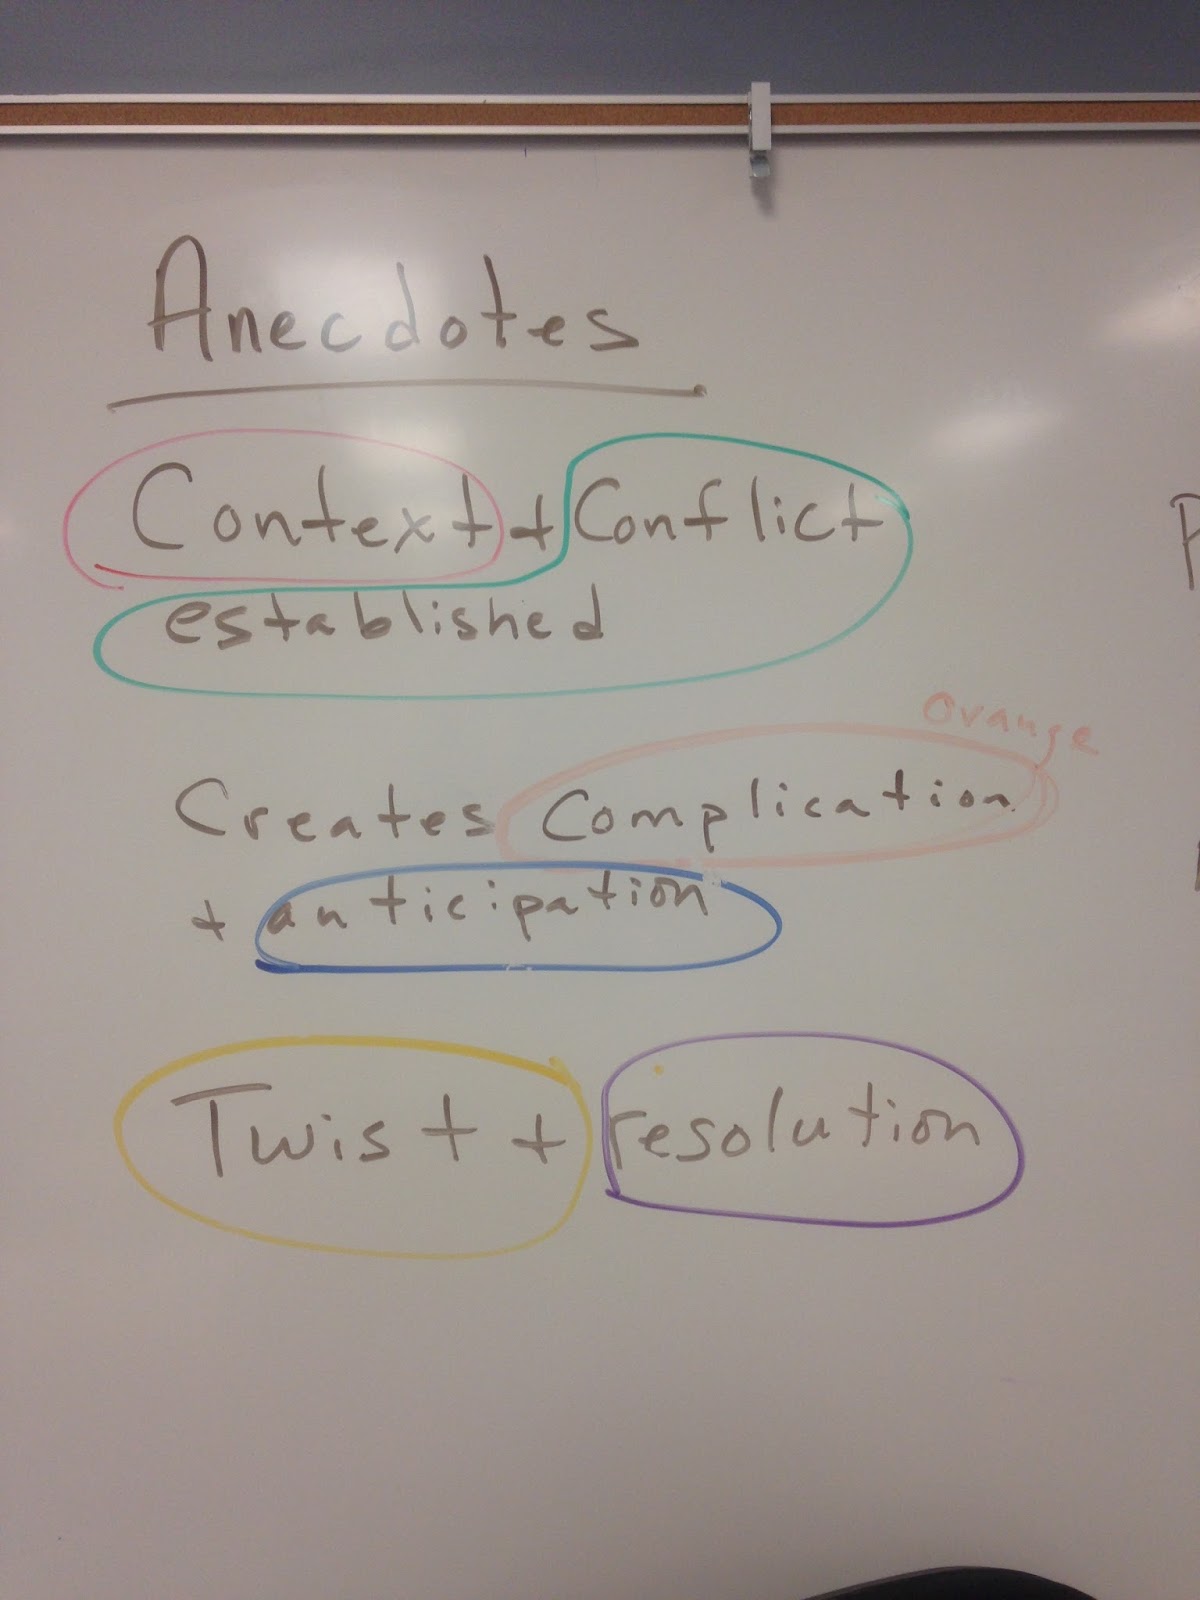 Anecdotes
Context + Conflict
established
Orange
Creates Complication
+ anticipation
Twist + resolution